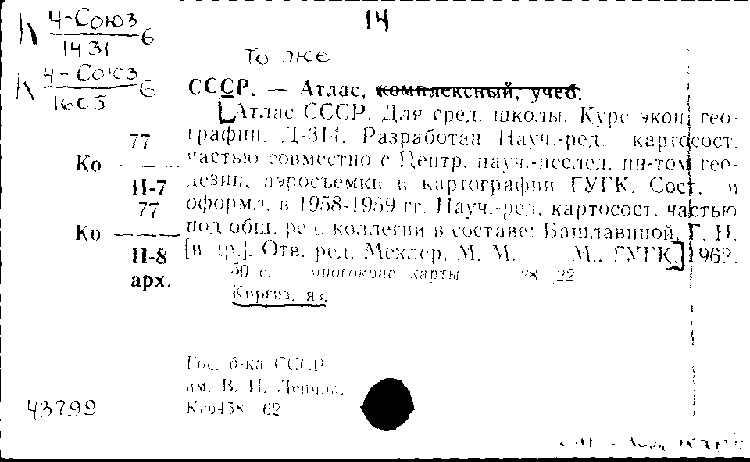 14
К 4-Союз 6
1431
То же
К 4-Союз 6
1605
СССР. — Атлас, комплексный, учеб.
[Атлас СССР. Для сред. школы. Курс экон. гео-
графии. Д-314. Разработан Науч.-ред. картосост.
77
частью совместно с Центр. науч.-исслед. ин-том гео-
Ко
дезии, аэросъемки и картографии ГУГК. Сост. и
П-7
оформл. в 1958-1959 гг. Науч.-ред. картосост. частью
77
под общ. ред. коллегии в составе: Башлавиной, Г. Н.
Ко
[и др.]. Отв. ред. Мехлер, М. М. М., ГУГК,] 1962.
П-8
50 с. многокрас. карты 28 22
арх.
Киргиз. яз.
Гос. б-ка СССР
им. В. И. Ленина.
43799
62